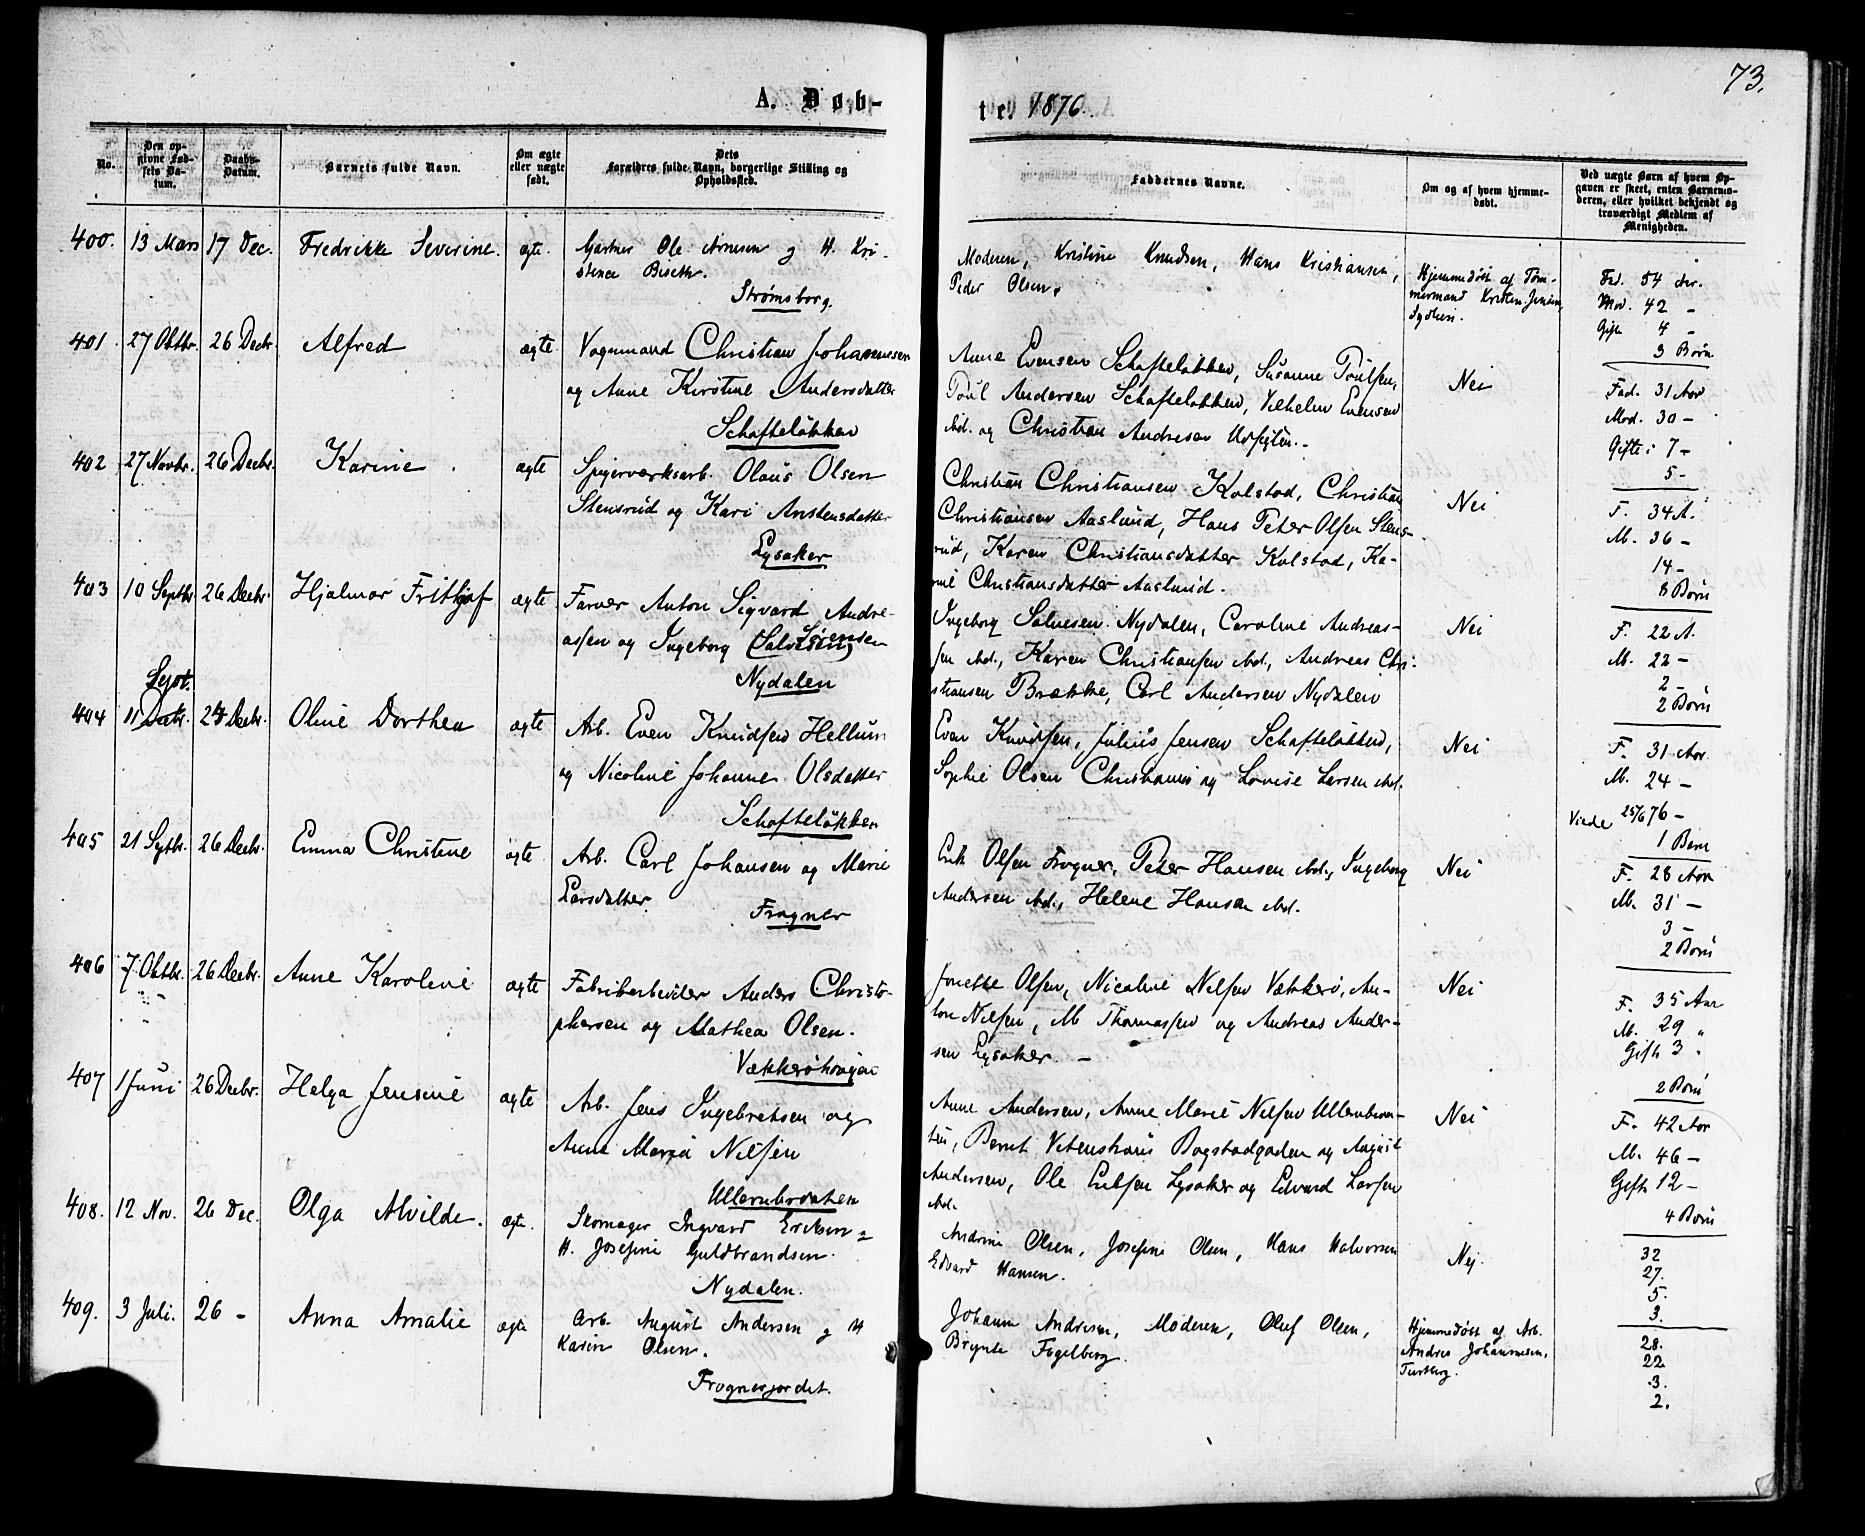 73.
A. Døb-
te. 1876.
No.
Den op-
givne Fød-
sels Da-
tum.
Daabs-
Datum.
Barnets fulde Navn.
Om ægte
eller uægte
født.
Dets
Forældres fulde Navn, borgerlige Stilling og
Opholdssted.
Faddernes Navne.
Om og af hvem hjemme-
døbt.
Ved uægte Børn af hvem Op-
gaven er skeet, enten Barnemo-
deren, eller hvilket bekjendt og
troværdigt Medlem af
Menigheden.
400. 13 Mars 17 Dec. Fredrikke Severine. ægte. Gartner Ole Arnesen og H. Kri-
stence Biseth.
Strømsborg.
Moderen, Kristine Knudsen, Hans Kristiansen,
Peder Olsen.
Hjemmedøbt af Tøm-
mermand Kristen Jensen,
Fad. 54 Ar.
Mod. 42 -
Gift 4 -
3 Børn
401. 27 Oktbr. 26 Decbr. Alfred ægte Vognmand Christian Johannesen
og Anne Kirstine Andersdatter
Schafteløkken
Anne Evensen Schafteløkken, Susanne Poulsen,
Poul Andersen Schafteløkken, Vilhelm Evensen
ibd. og Christian Andresen
Nei
Fad. 31 Aar
Mod. 30 -
Gifte: 7 -
5 -
402 27 Novbr. 26 Decbr. Karine. ægte Spigerverksarb. Olaus Olsen
Stensrud og Kari Anstensdatter
Lysaker
Christian Christiansen Kolstad, Christian
Christiansen Aaslund, Hans Peter Olsen Stens-
rud, Karen Christiansdatter Kolstad, Ka-
rine Christiansdatter Aaslund.
Nei
F. 34 A.
M. 36 -
14 -
8 Børn
403 10 Septbr 26 Decbr. Hjalmar Frithjof ægte Farver Anton Sigvard Andre-
assen og Ingeborg (Salvesen) Sørensen
Nydalen
Ingeborg Salvesen Nydalen, Caroline Andreas-
sen ibd., Karen Christiansen ibd., Andreas Chri-
stiansen Brække, Carl Andersen Nydalen
Nei
F. 22 A.
M. 22 -
2 -
2 Børn
Sept.
404 11 Decbr. 26 Decbr. Oline Dorthea ægte Arb. Even Knudsen Hellum
og Nicoline Johanne Olsdatter
Schafteløkken
Even Knudsen, Julius Jensen Schafteløkken,
Sophie Olsen Christiania og Lovise Larsen ibd.
Nei
F. 31 Aar
M. 24 -
Viede 25/6 76 -
1 Barn
405 21 Septbr. 26 Decbr. Emma Christine ægte Arb. Carl Johansen og Marie
Larsdatter
Frogner
Erik Olsen Frogner, Peter Hansen ibd., Ingeborg
Andersen ibd., Helene Hansen ibd.
Nei
F. 28 Aar
M. 31 -
3 -
2 Børn
406 7 Oktbr. 26 Decbr. Anne Karoline ægte Fabrikarbeider Anders Christo-
phersen og Mathea Olsen.
Jonette Olsen, Nicoline Nilsen Vækkerø, An-
ton Nilsen, M Thomassen og Andreas Ander-
sen Lysaker. -
Nei
F. 35 Aar
M. 29 "
Gift 3 "
2 Børn
407 1 Juni 26 Decbr. Helga Jensine ægte Arb. Jens Ingebretsen og
Anne Maria Nilsen
Ullernbraaten
Anne Andersen, Anne Marie Nilsen Ullernbraa-
ten, Bernt Bogstadgaden og August
Andersen, Ole Eriksen Lysaker og Edvard Larsen
ibd.
Nei
F. 42 Aar
M. 46 -
Gift 12 -
4 Børn
408. 12 Nov. 26 Dec. Olga Alvilde. ægte. Skomager Ingvard Eriksen og
H. Josefine Guldbrandsen.
Nydalen.
Andrine Olsen, Josefine Olsen, Hans Halvorsen
Edvard Hansen.
Nej.
32
27.
5.
3.
409. 3 Juli. 26 - Anna Amalie ægte Arb. August Andersen og H
Karin Olsen.
Frognerjordet.
Johanne Andresen, Moderen, Oluf Olsen,
Brynte Fogelberg.
Hjemmedøbt af Arb.
Andres Johannesen,
28.
22
3.
2.